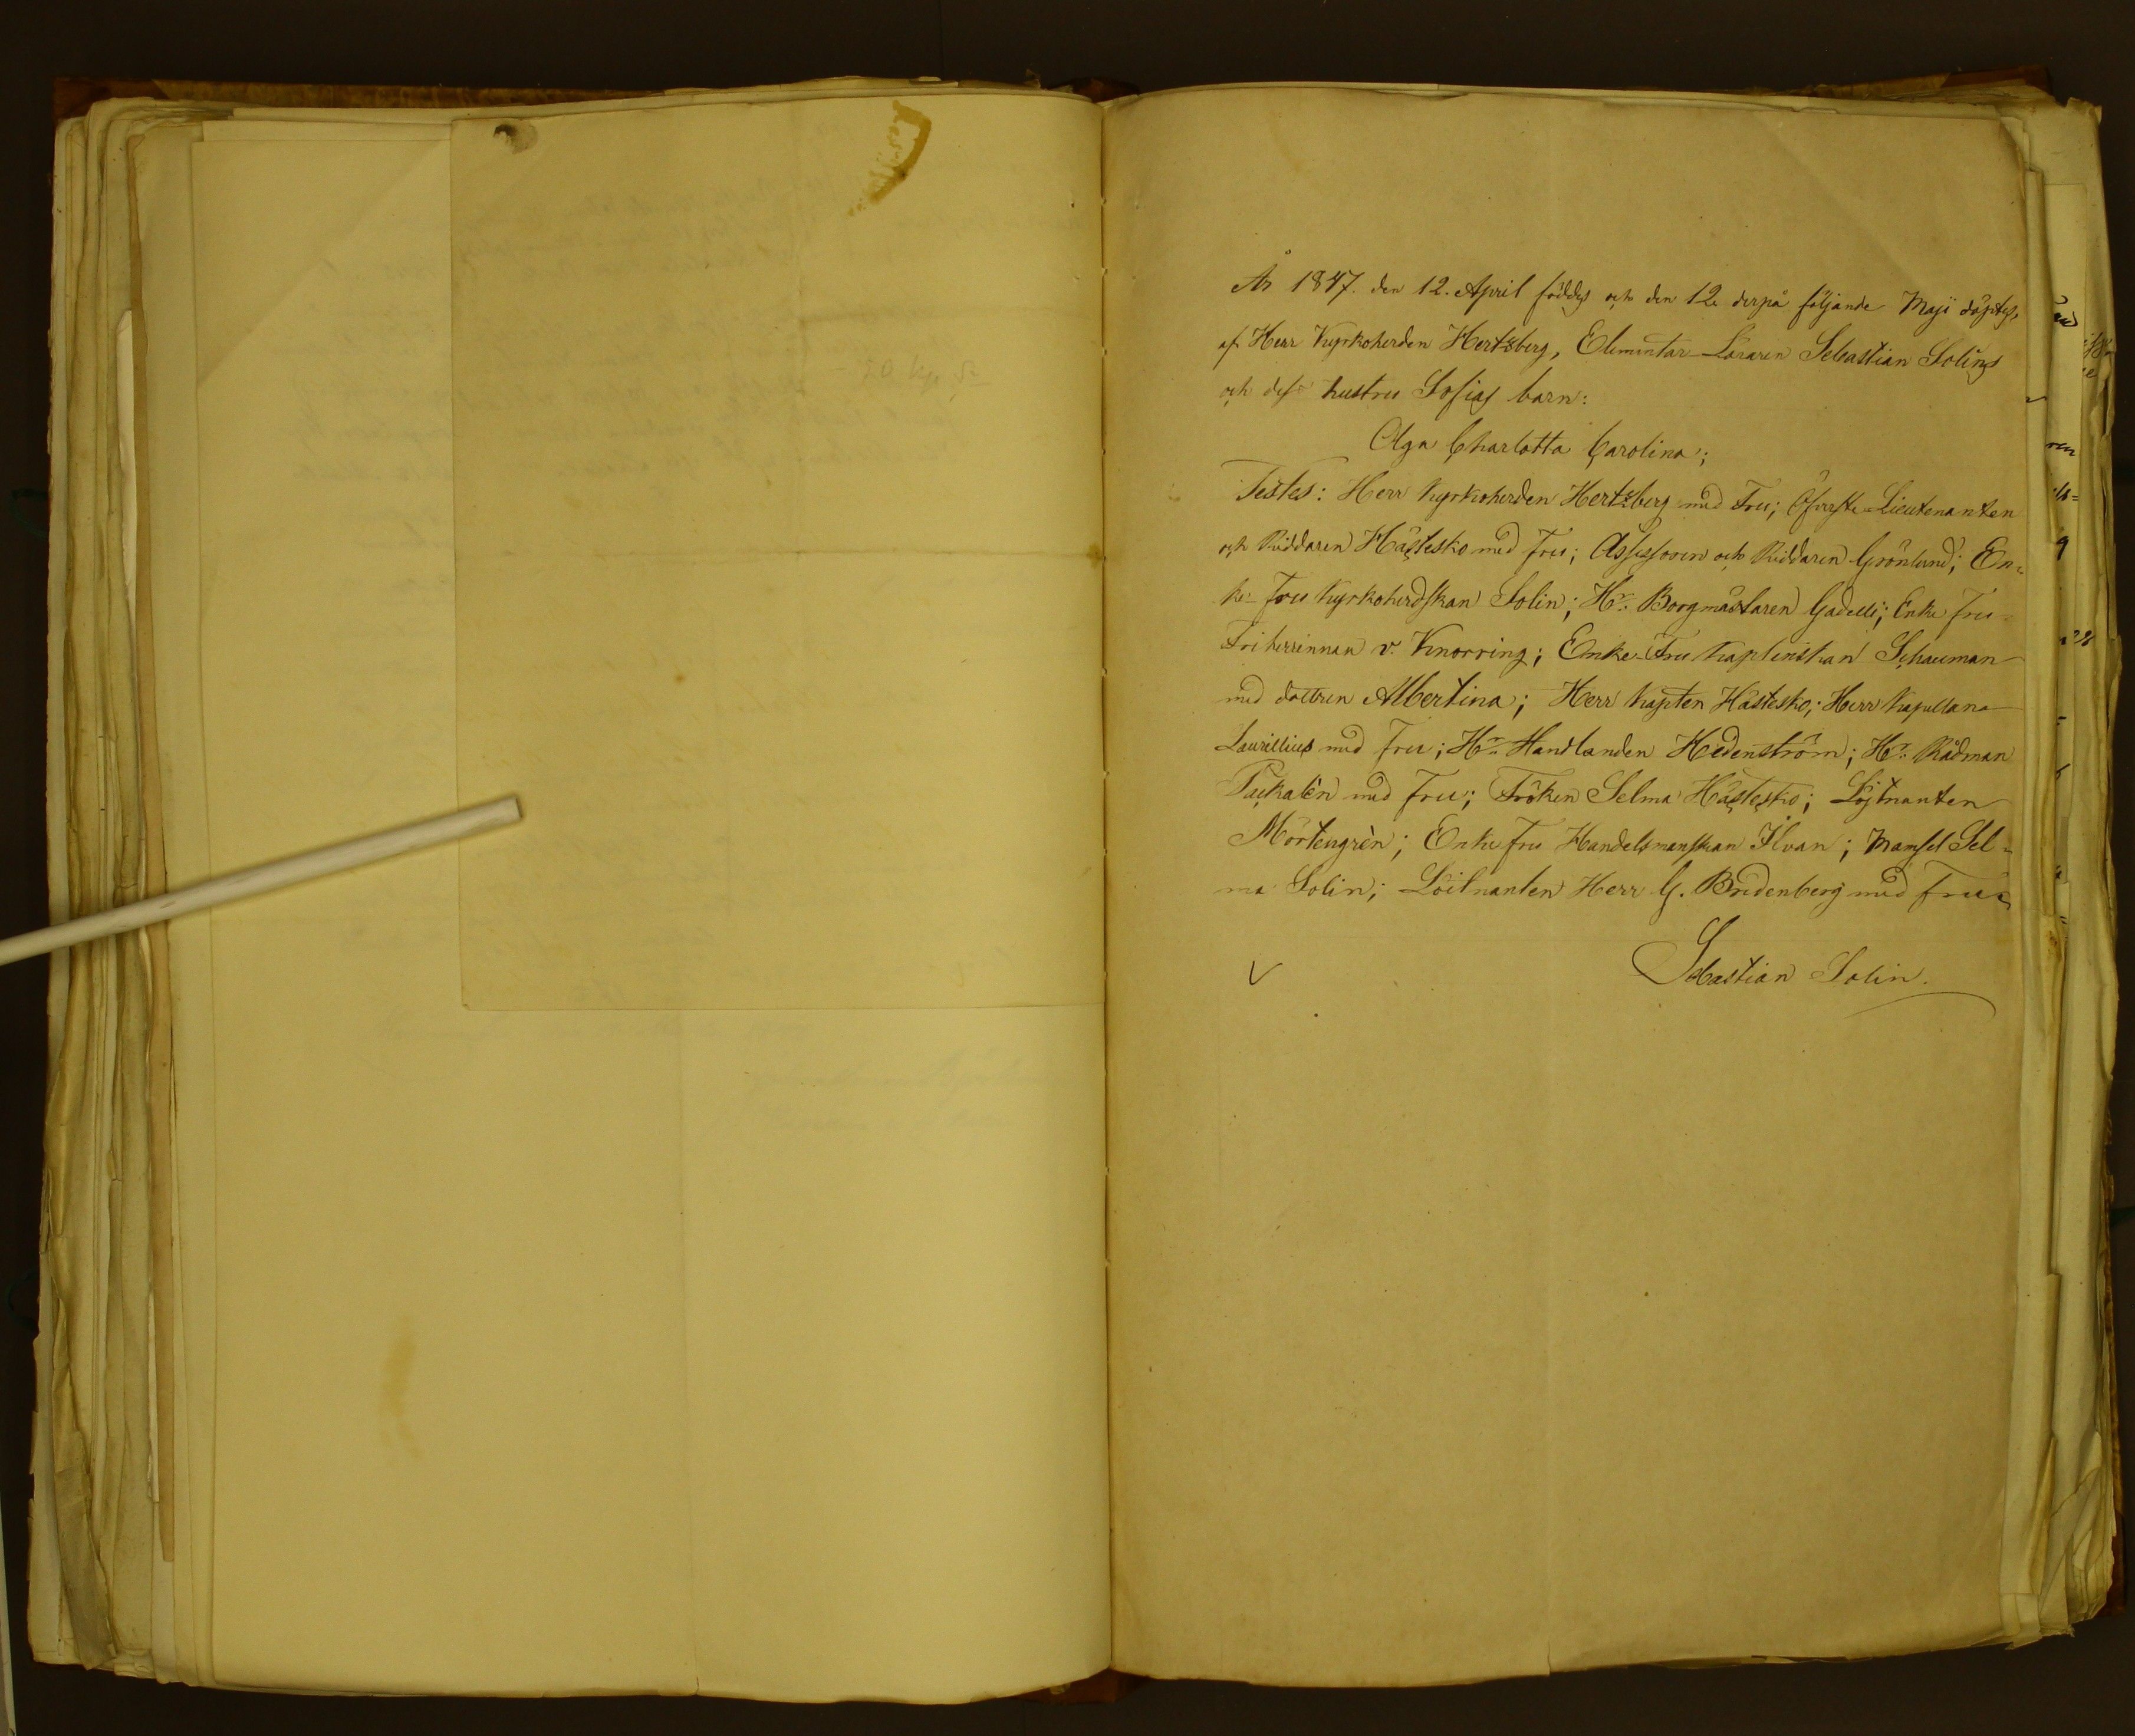 År 1847. den 12. April föddes och den 12. derpå följande Maji döptes,
af Herr Kyrkoherden Hertzberg, Elementar-Läraren Sebastian Solins
och dess hustru Sofias barn:
Olga Charlotta Carolina;
Testes: Herr Kyrkoherden Hertzberg med Fru; Öfverste-Lieutenanten
och Riddaren Hästesko med Fru; Assessoren och Riddaren Grönlund; En=
ke-Fru Kyrkoherdskan Solin; Hr: Borgmästaren Gadelli; Enke Fru
Friherrinnan v. Knorring; Enke-Fru Kaptenskan Schauman
med dottren Albertina; Herr Kapten Hästesko; Herr Kapellan
Laurellius med Fru; Hr: Handlanden Hedenström; Hr: Rådman
Packalèn med Fru; Fröken Selma Hästesko; Löjtnanten
Mörtengrèn; Enke Fru Handelsmanskan Ilvan; Mamsel Sel=
ma Solin; Löitnanten Herr G. Bredenberg med Fru
Sebastian Solin.